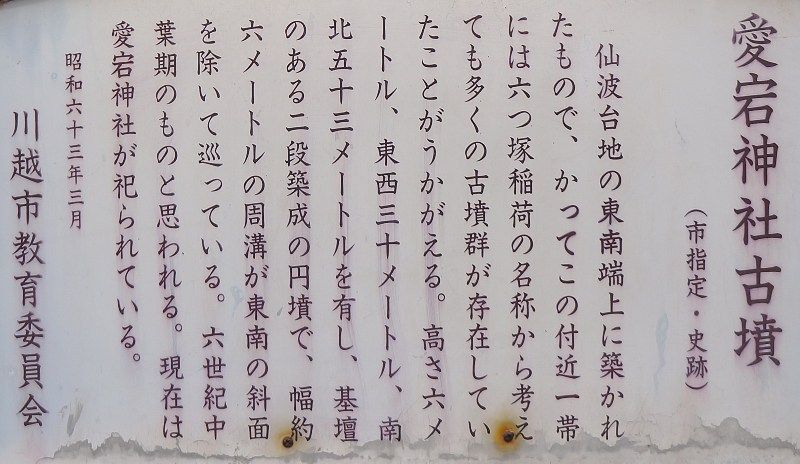 愛宕神社古墳
(市指定・史跡)
仙波台地の東南端上に築かれ
たもので、かってこの付近一帯
には六つ塚稲荷の名称から考え
ても多くの古墳群が存在してい
たことがうかがえる。高さ六メ
ートル、東西三十メートル、南
北五十三メートルを有し、基壇
のある二段築成の円墳で、幅約
六メートルの周溝が東南の斜面
を除いて巡っている。六世紀中
葉期のものと思われる。現在は
愛宕神社が祀られている。
昭和六十三年三月
川越市教育委員会